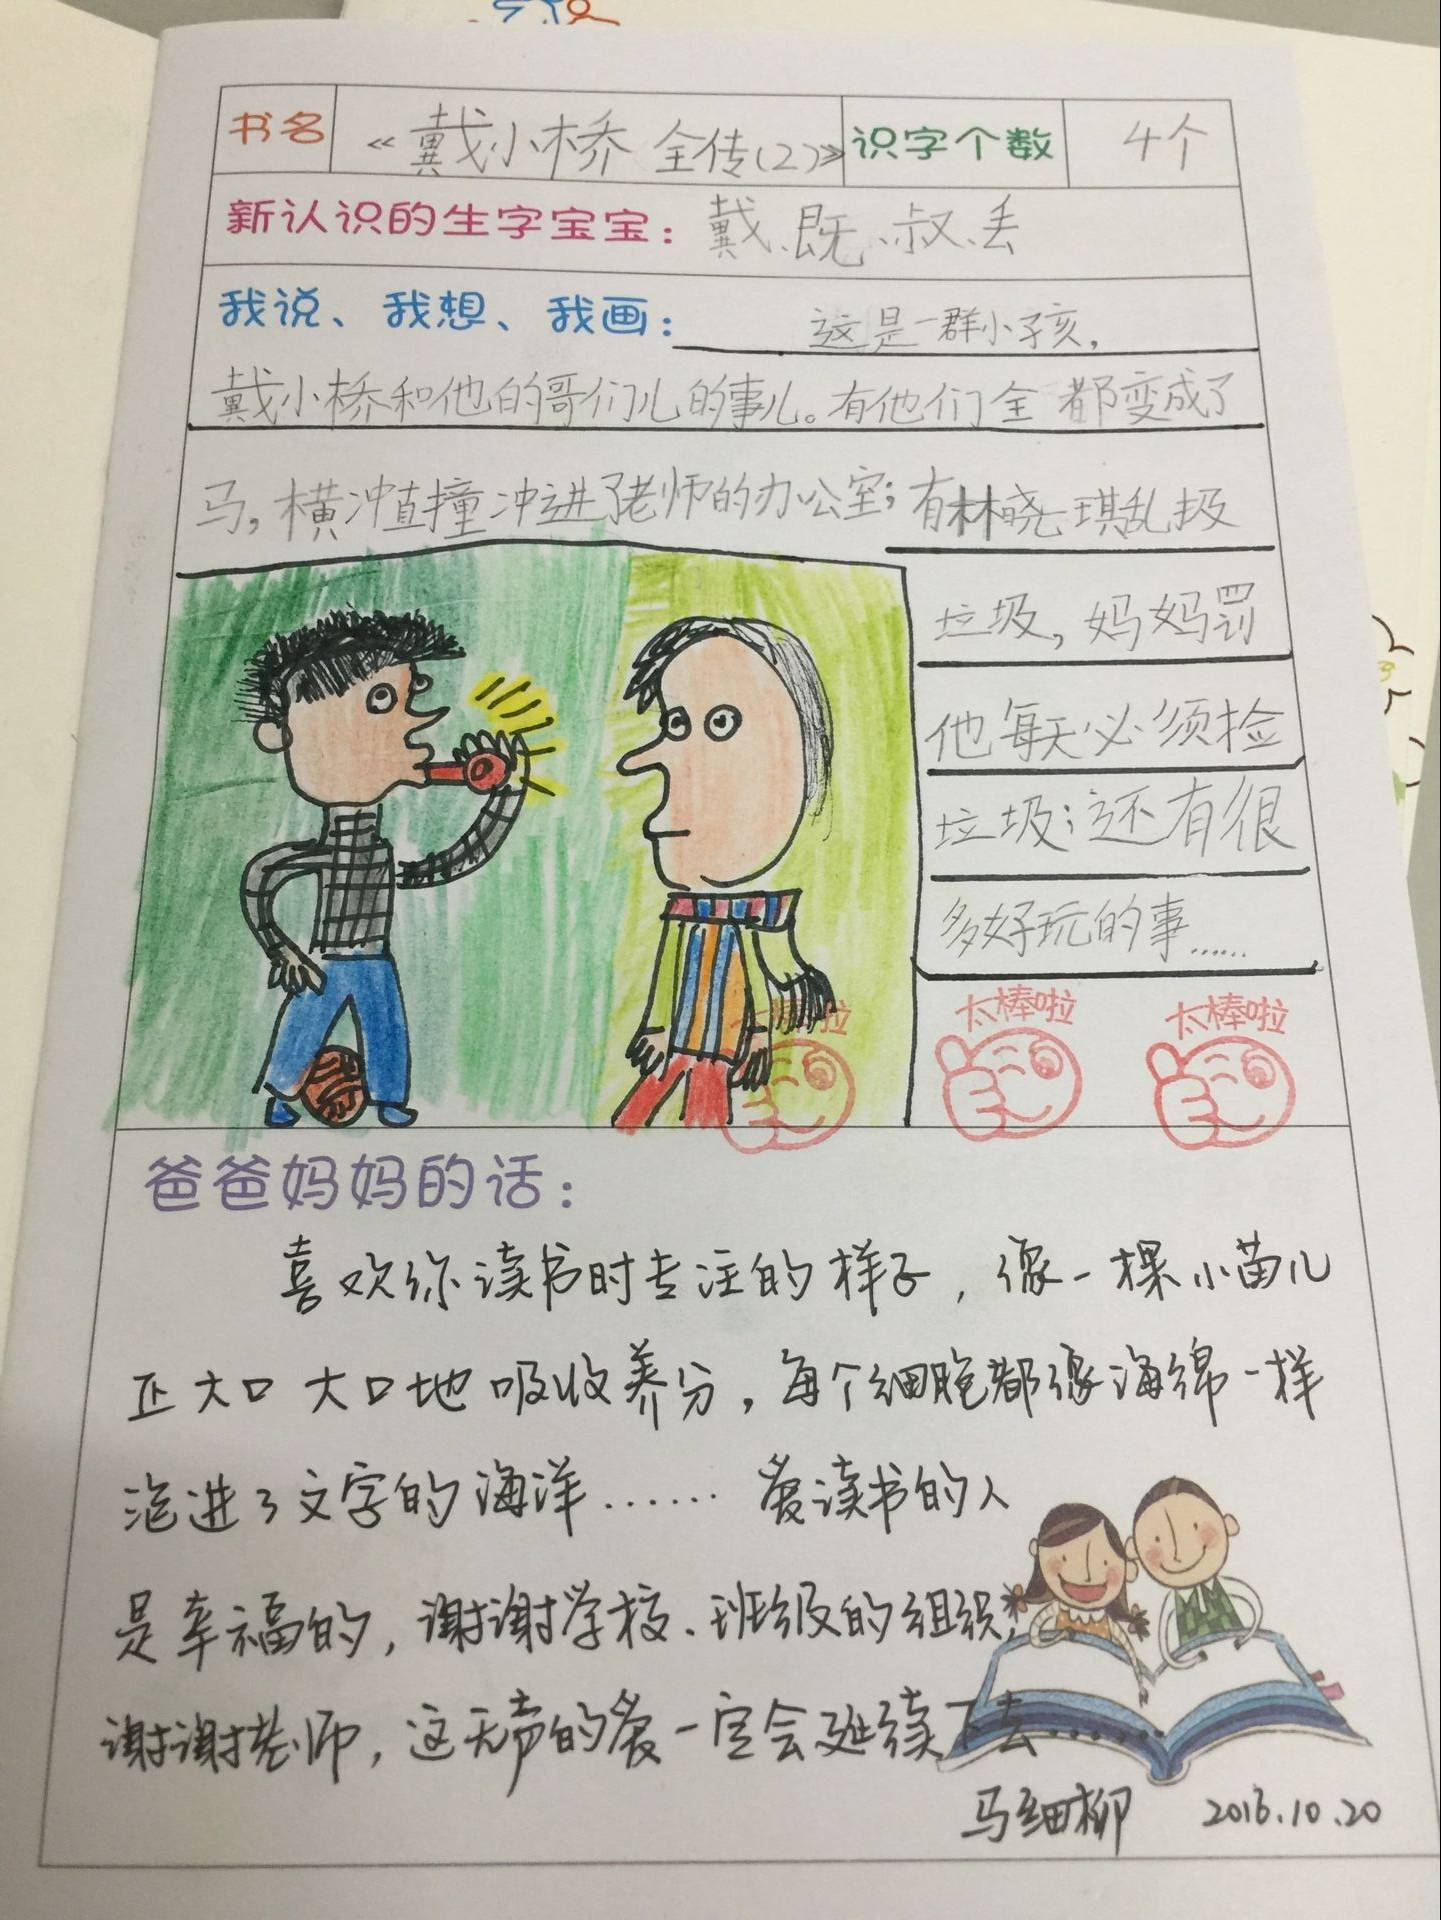 书名 《戴小桥 全传(2)》 识字个数 4个
新认识的生字宝宝：戴、既、叔、丢
我说、我想、我画：这是一群小孩，
戴小桥和他的哥们儿的事儿。有他们全都变成了
马，横冲直撞冲进了老师的办公室；有林晓琪乱扔
垃圾，妈妈罚
他每天必须捡
垃圾；还有很
多好玩的事……
太棒啦 太棒啦 太棒啦
爸爸妈妈的话：
喜欢你读书时专注的样子，像一棵小苗儿
正大口大口地吸收养分，每个细胞都像海绵一样
泡进了文字的海洋…… 爱读书的人
是幸福的，谢谢学校、班级的组织，
谢谢老师，这无声的爱一定会延续下去……
马细柳 2016.10.20